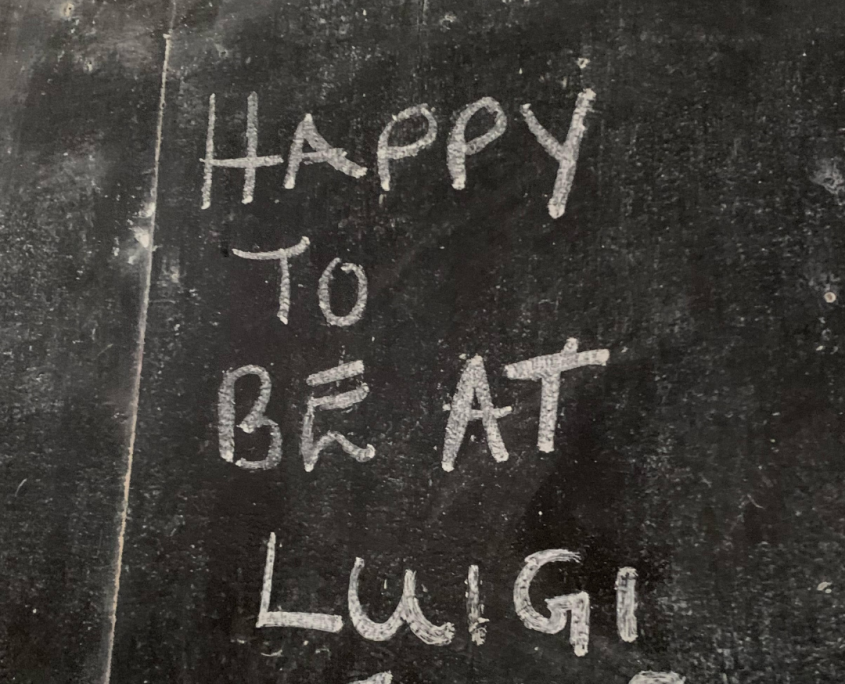 HAPPY
TO
BE AT
LUIGI